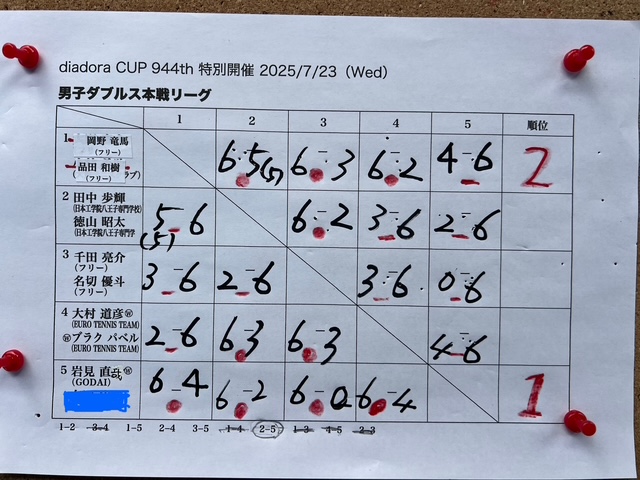 diadora CUP 944th 特別開催 2025/7/23（Wed）
男子ダブルス本戦リーグ
1 2 3 4 5 順位
1 岡野 竜馬 6-5(5) 6-3 6-2 4-6 2
(フリー)
品田 和樹
(フリー) ラブ)
2 田中 歩輝 5-6 6-2 3-6 2-6
(日本工学院八王子専門学校) (5)
徳山 昭太
(日本工学院八王子専門学
3 千田 亮介 3-6 2-6 3-6 0-6
(フリー)
名切 優斗
(フリー)
4 大村 道彦㊒ 2-6 6-3 6-3 4-6
(EURO TENNIS TEAM)
㊒ブラク パベル
(EURO TENNIS TEAM)
5 岩見 直哉 6-4 6-2 6-0 6-4 1
(GODAI)
1-2 3-4 1-5 2-4 3-5 1-4 2-5 1-3 4-5 2-3